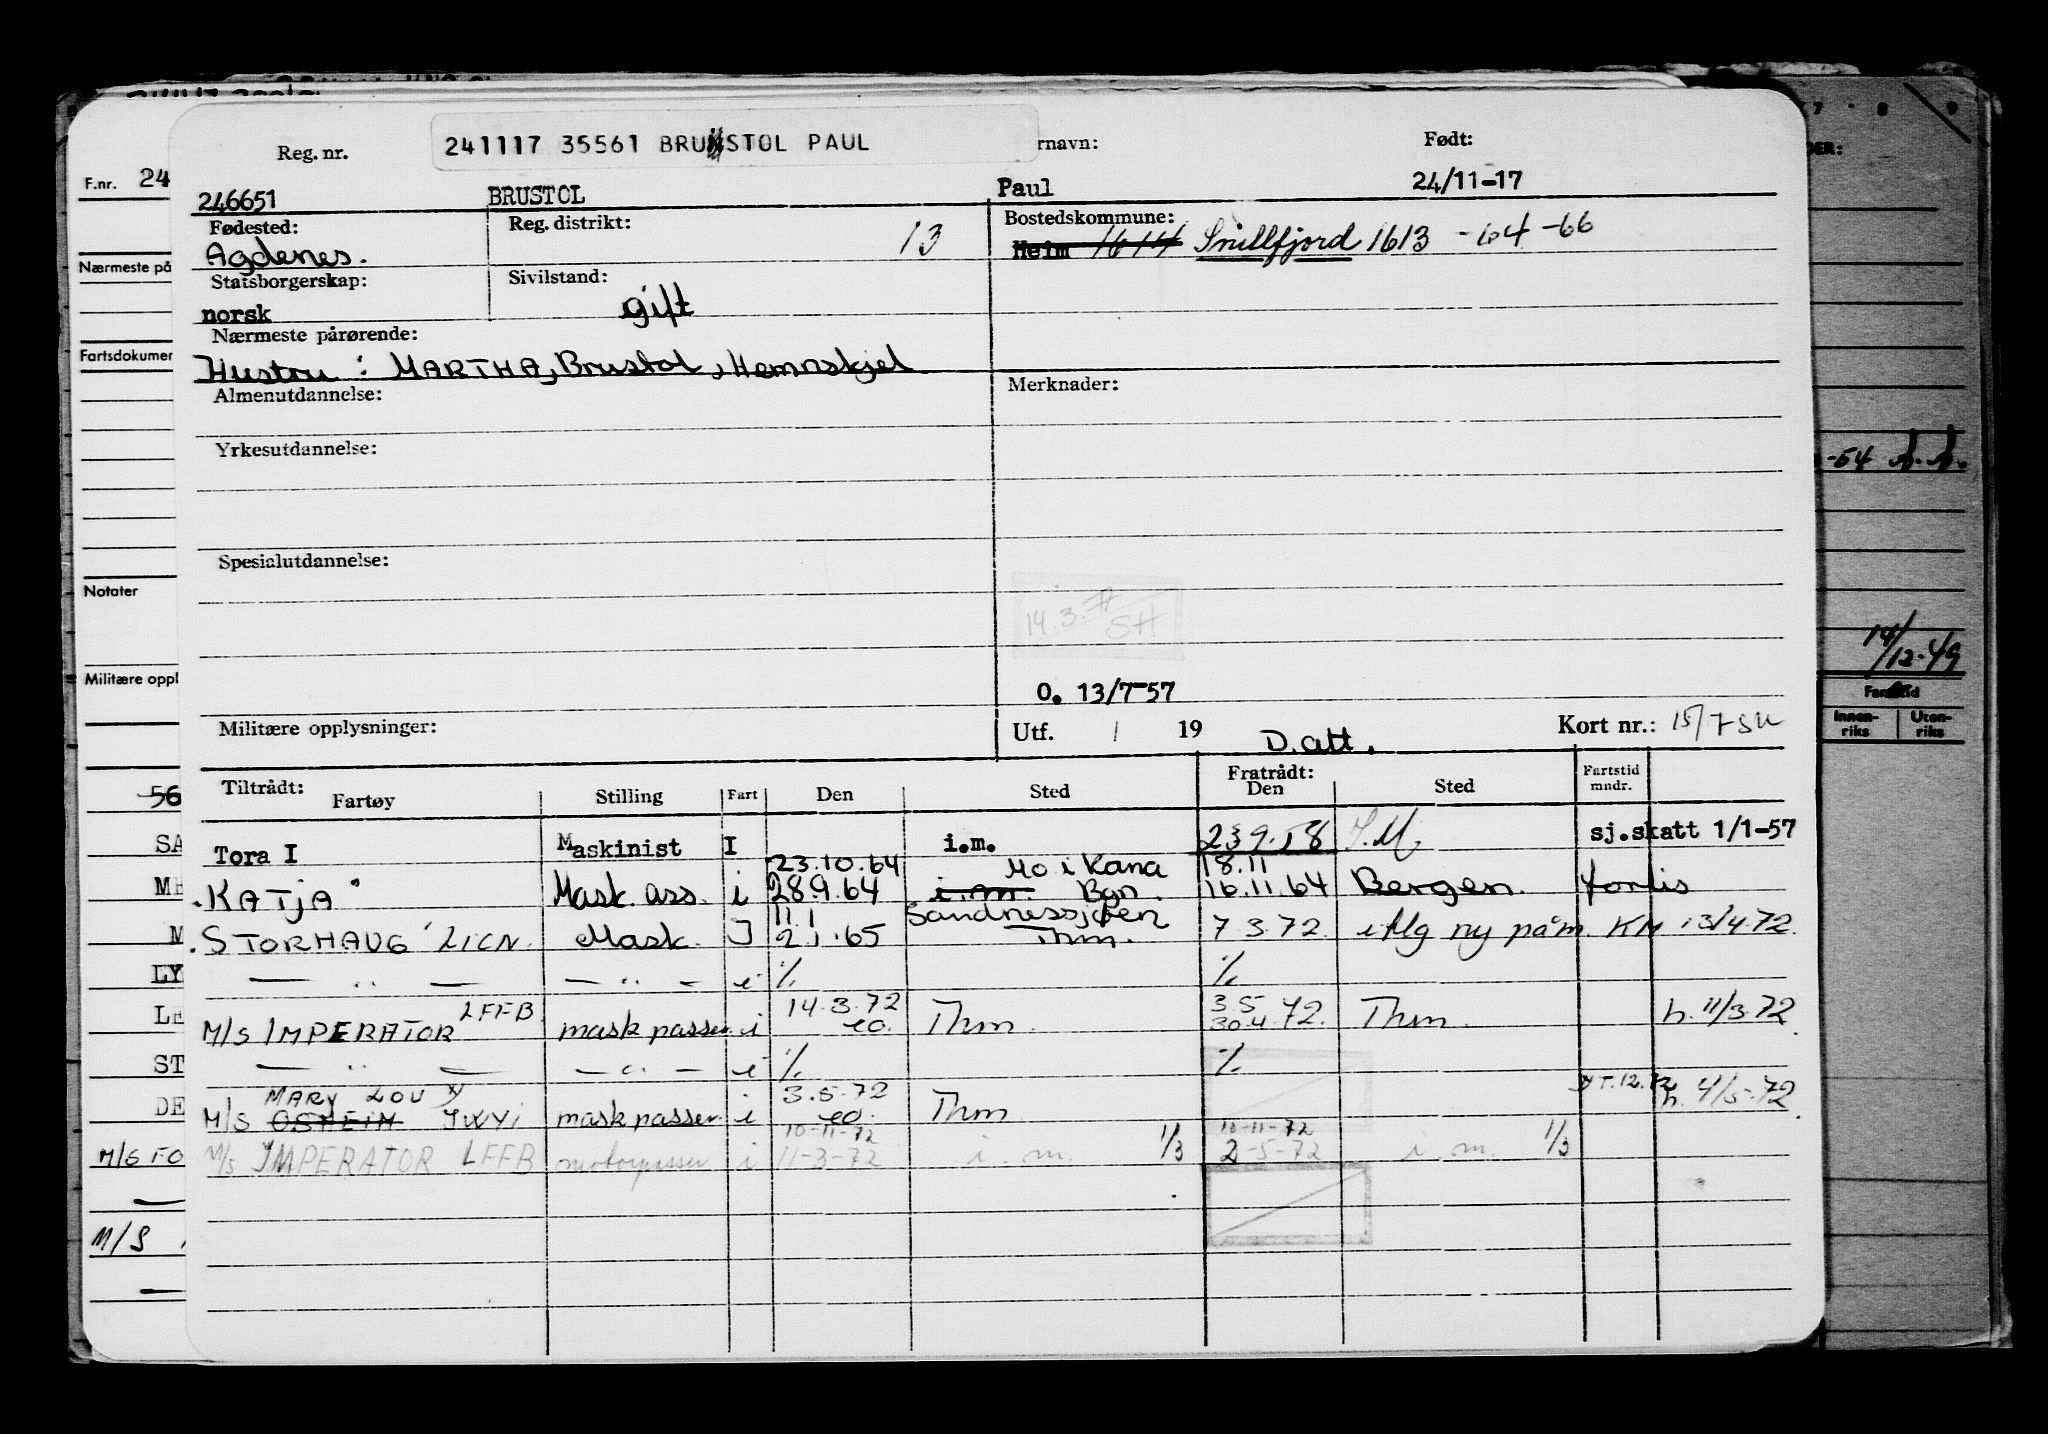 241117 35561 BRUNSTOL PAUL
Reg. nr. rnavn: Født:
F.nr. 24
246651 BRUSTOL Paul 24/11-17
Fødested: Reg. distrikt: Bostedskommune:
Agdenes. 13 Heim 1614 Snillfjord 1613 -64 -66
Nærmeste på
Statsborgerskap: Sivilstand:
norsk gift
Nærmeste pårørende:
Hustru: MARTHA, Brustol, Hemnskjel
Fartsdokumen
Almenutdannelse: Merknader:
Yrkesutdannelse:
-54
Spesialutdannelse:
Notater
14.3.
SH
14/12-49
Militære oppl
O. 13/7-57
Militære opplysninger: Utf. / 19 D. att. Kort nr.: 15/7 SH
Innen-riks Uten-riks
Tiltrådt: Fratrådt: Fartstid mndr.
Fartøy Stilling Fart Den Sted Den Sted
56
SA
Tora I Maskinist I i.m. 23 9.58 I.M sj.skatt 1/1-57
23.10.64 Mo i Rana 18.11
KATJA" Mask. ass. i 28.9.64 i.m. Bgn. 16.11.64 Bergen. forlis
11.1 Sandnessjøen
STORHAUG LICN. Mask. I 2.1.65 Thm. 7.3.72. i flg ny påm. KM 13/4.72.
— " — — " — i % %
LY
LFFB 14.3.72 3.5
M/S IMPERATOR mask passer. i eo. Thm. 30.4.72. Thm. h. 11/3.72.
LE
— " — — " — i % %
ST
MARY LOU 3.5.72
M/S OSHEIM JWYI mask passer. i eo. Thm h. 4/5-72.
DE
10-11-72 10-11-72
M/S FO
M/S IMPERATOR LFFB motorpasser i 11-3-72 i. m. 1/3 2-5-72 i. m. 1/3
M/S